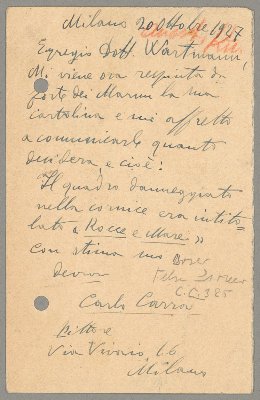 Milano 20 Ottobre 1927
Egregio Dott. Wartmann,
Mi viene ora respinta da
Forte dei Marmi la sua
cartolina e mi affretto
a comunicarle quanto
desidera e cioè:
Il quadro danneggiato
nella cornice era intito-
lato « Rocce e Mare »
con stima suo
devmo
Carlo Carrà
Pittore
Via Vivaio, 16
Milano